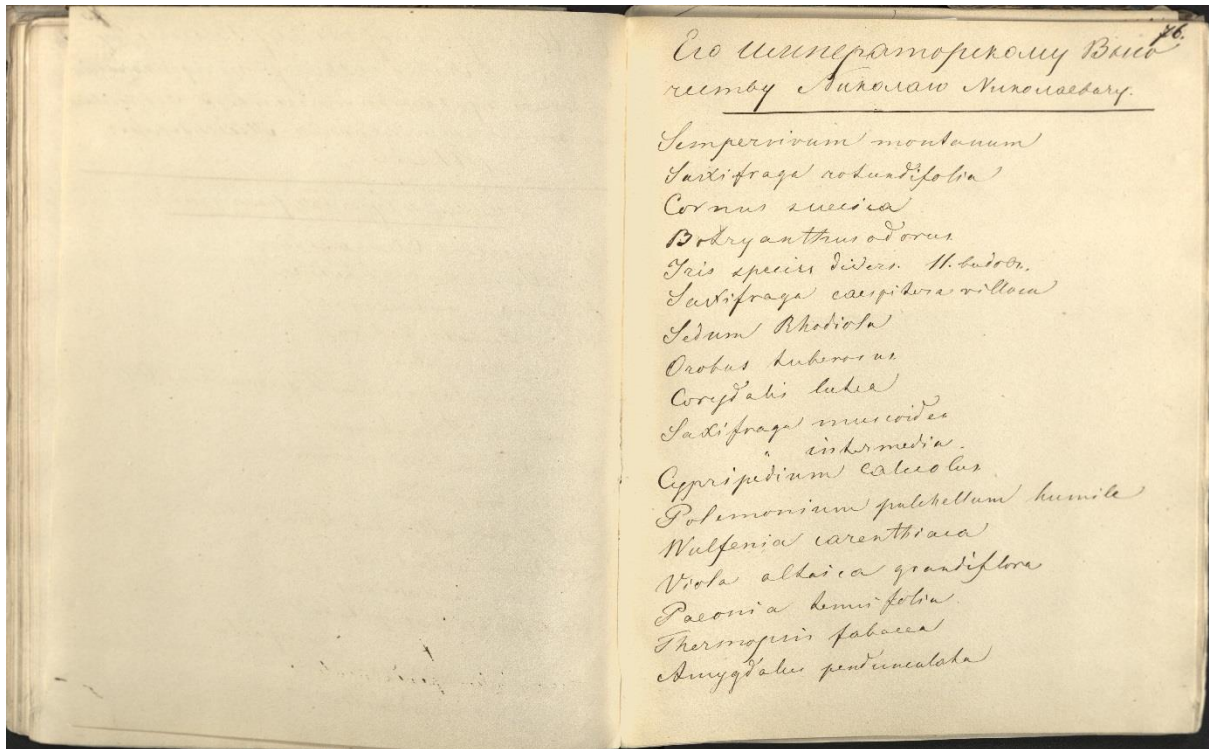 76.
Его Императорскому Высо
честву Николаю Николаевичу.
Sempervivum montanum
Saxifraga rotundifolia
Cornus suecica
Botryanthus odorus
Iris species divers. 11. видовъ.
Saxifraga caespitosa villosa
Sedum Rhodiola
Orobus tuberosus
Corydalis lutea
Saxifraga muscoides
" intermedia.
Cypripedium calceolus
Polemonium pulchellum humile
Wulfenia carenthiaca
Viola altaica grandiflora
Paeonia tenuifolia.
Thermopsis fabacea
Amygdalus pendunculata